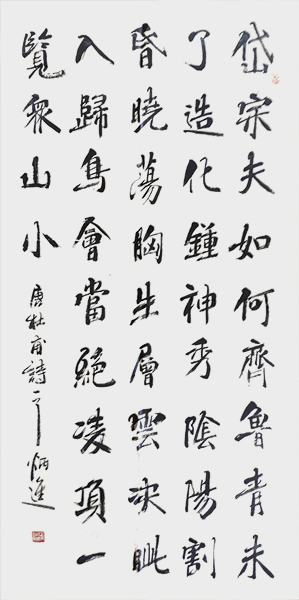 岱宗夫如何齊魯青未
了造化鍾神秀陰陽割
昏曉蕩胸生層雲决眦
入歸鳥會當絕凌頂一
覽眾山小
唐杜甫詩一首炳進